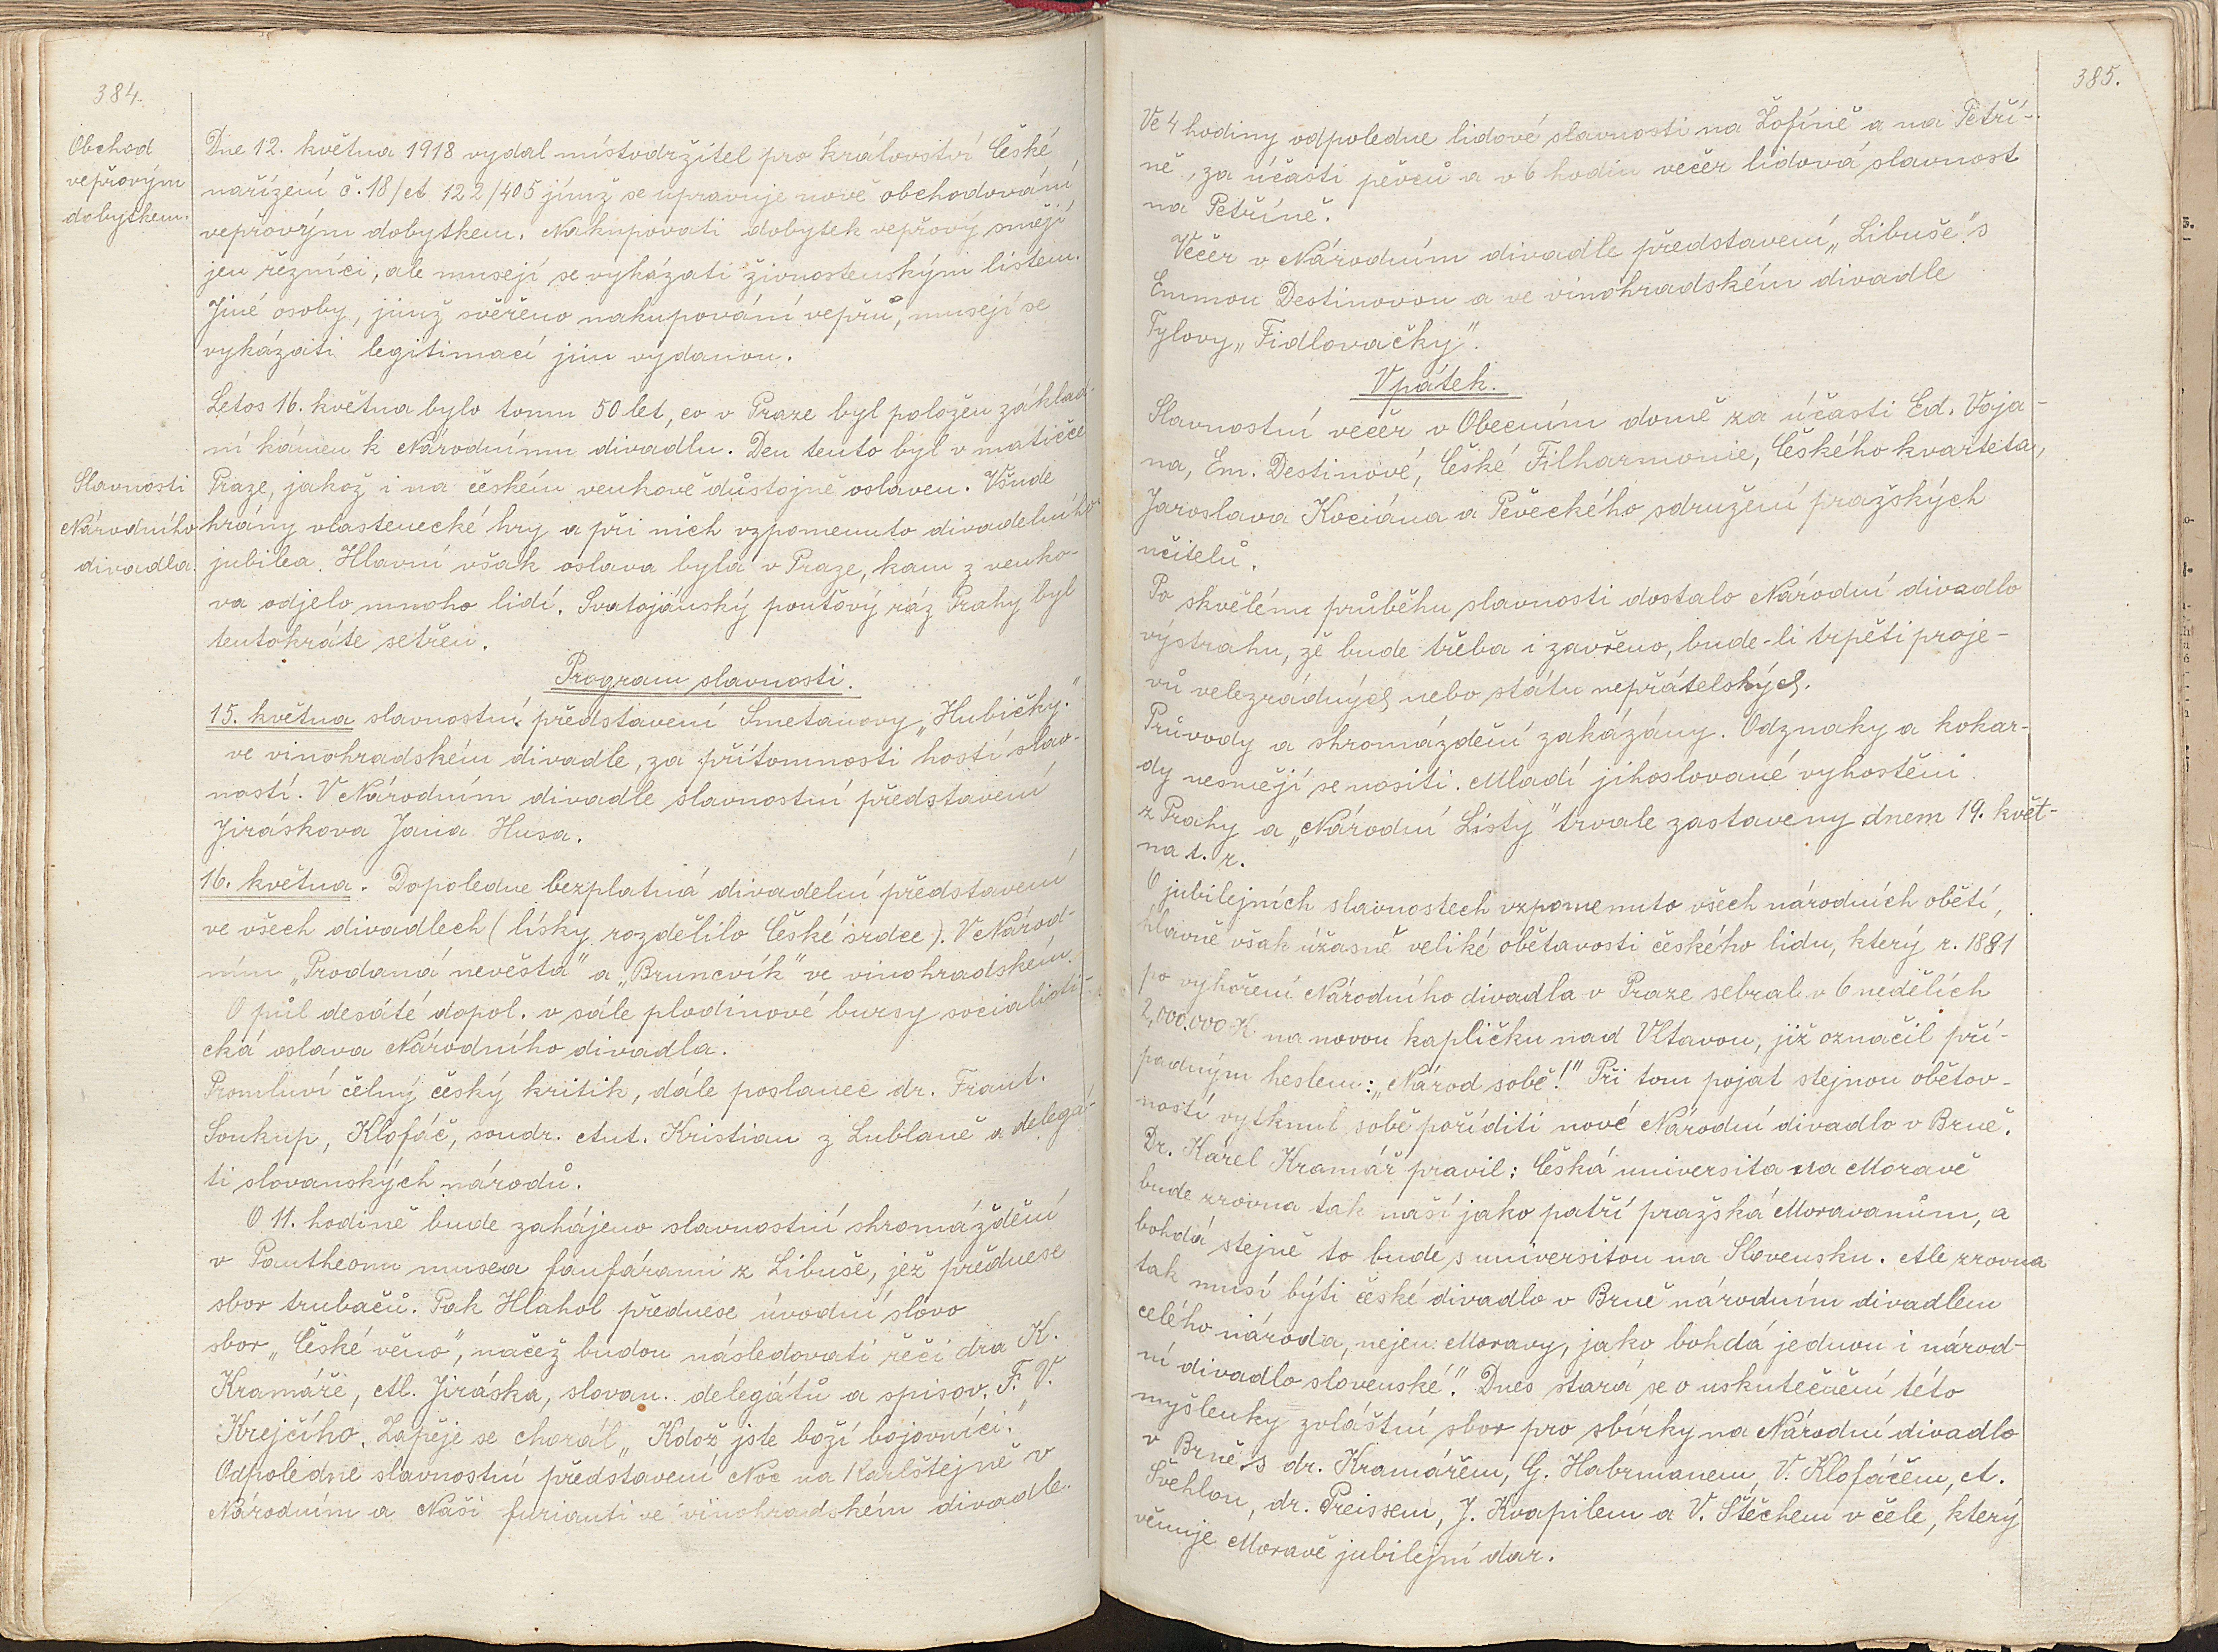 384.
Obchod
vepřovým
dobytkem.
Dne 12. května 1918 vydal místodržitel pro království České
nařízení č. 18/ct 122/405 jímž se upravuje nově obchodování
vepřovým dobytkem. Nakupovati dobytek vepřový smějí
jen řezníci, ale musejí se vykázati živnostenským listem.
Jiné osoby, jimž svěřeno nakupování vepřů, musejí se
vykázati legitimací jim vydanou.
Letos 16. května bylo tomu 50 let, co v Praze byl položen základ-
ní kámen k Národnímu divadlu. Den tento byl v matičce
Slavnosti
Národního
divadla.
Praze, jakož i na českém venkově důstojně oslaven. Všude
hrány vlastenecké hry a při nich vzpomenuto divadelního
jubilea. Hlavní však oslava byla v Praze, kam z venko-
va odjelo mnoho lidí. Svatojánský pouťový ráz Prahy byl
tentokráte setřen.
Program slavnosti.
15. května slavnostní představení Smetanovy „Hubičky."
ve vinohradském divadle, za přítomnosti hostí slav-
ností. V Národním divadle slavnostní představení
Jiráskova Jana Husa.
16. května. Dopoledne bezplatná divadelní představení
ve všech divadlech (lísky rozdělilo České srdce). V Národ-
ním „Prodaná nevěsta" a „Bruncvík" ve vinohradském.
O půl desáté dopol. v sále plodinové bursy socialisti-
cká oslava Národního divadla.
Promluví čelný český kritik, dále poslanec dr. Frant.
Soukup, Klofáč, soudr. Ant. Kristian z Lublaně a delegá-
ti slovanských národů.
O 11. hodině bude zahájeno slavnostní shromáždění
v Pantheonu musea fanfárami z Libuše, jež přednese
sbor trubačů. Pak Hlahol přednese úvodní slovo
sbor „České věno", načež budou následovati řeči dra K.
Kramáře, Al. Jiráska, slovan. delegátů a spisov. F. V.
Krejčího. Zapěje se chorál „Kdož jste boží bojovníci."
Odpoledne slavnostní představení Noc na Karlštejně v
Národním a Naši furianti ve vinohradském divadle.
385.
Ve 4 hodiny odpoledne lidové slavnosti na Žofíně a na Petří-
ně, za účasti pěvců a v 6 hodin večer lidová slavnost
na Petříně.
Večer v Národním divadle představení „Libuše" s
Emmou Destinovou a ve vinohradském divadle
Tylovy „Fidlovačky".
V pátek.
Slavnostní večer v Obecním domě za účasti Ed. Voja-
na, Em. Destinové, České Filharmonie, Českého kvarteta,
Jaroslava Kociána a Pěveckého sdružení pražských
učitelů.
Po skvělém průběhu slavnosti dostalo Národní divadlo
výstrahu, že bude třeba i zavřeno, bude-li trpěti proje-
vů velezrádných nebo státu nepřátelských.
Průvody a shromáždění zakázány. Odznaky a kokar-
dy nesmějí se nositi. Mladí jihoslované vyhoštěni
z Prahy a „Národní Listy" trvale zastaveny dnem 19. květ-
na t. r.
O jubilejních slavnostech vzpomenuto všech národních obětí,
hlavně však úžasně veliké obětavosti českého lidu, který r. 1881
po vyhoření Národního divadla v Praze sebral v 6 nedělích
2,000.000 K na novou kapličku nad Vltavou, již označil pří-
padným heslem: „Národ sobě!" Při tom pojat stejnou obětov-
ností vytknul sobě poříditi nové Národní divadlo v Brně.
Dr. Karel Kramář pravil: Česká universita na Moravě
bude zrovna tak naší jako patří pražská Moravanům, a
bohdá stejně to bude s universitou na Slovensku. Ale zrovna
tak musí býti české divadlo v Brně národním divadlem
celého národa, nejen Moravy, jako bohdá jednou i národ-
ní divadlo slovenské." Dnes stará se o uskutečnění této
myšlenky zvláštní sbor pro sbírky na Národní divadlo
v Brně s dr. Kramářem, G. Habrmanem, V. Klofáčem, A.
Švehlou, dr. Preissem, J. Kvapilem a V. Štěchem v čele, který
věnuje Moravě jubilejní dar.